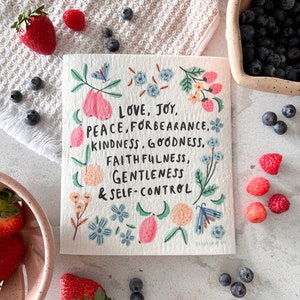 LOVE, JOY,
PEACE, FORBEARANCE,
KINDNESS, GOODNESS,
FAITHFULNESS,
GENTLENESS
& SELF-CONTROL